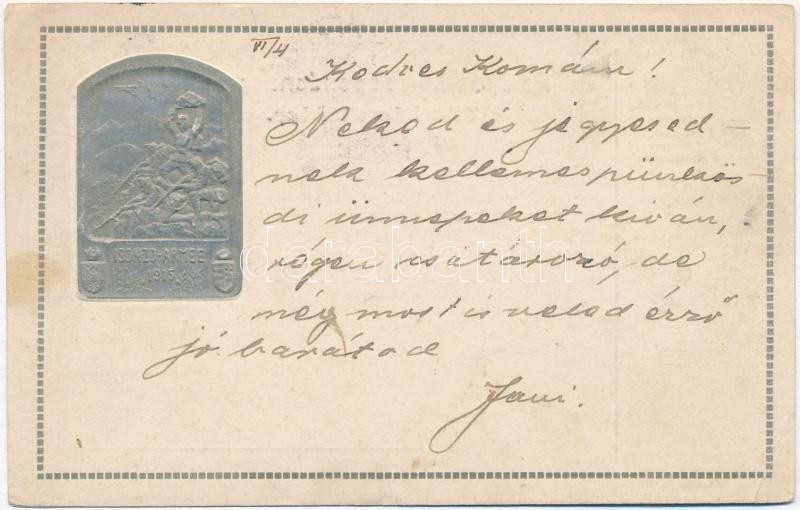 VI/4
Kedves Komám!
Neked és jegyesed-
nek kellemes pünkös-
di ünnepeket kíván,
régen csatározó, de
még most is veled érző
jó barátod
Jani.
ISONZO-ARMEE
1915
darabanth.com